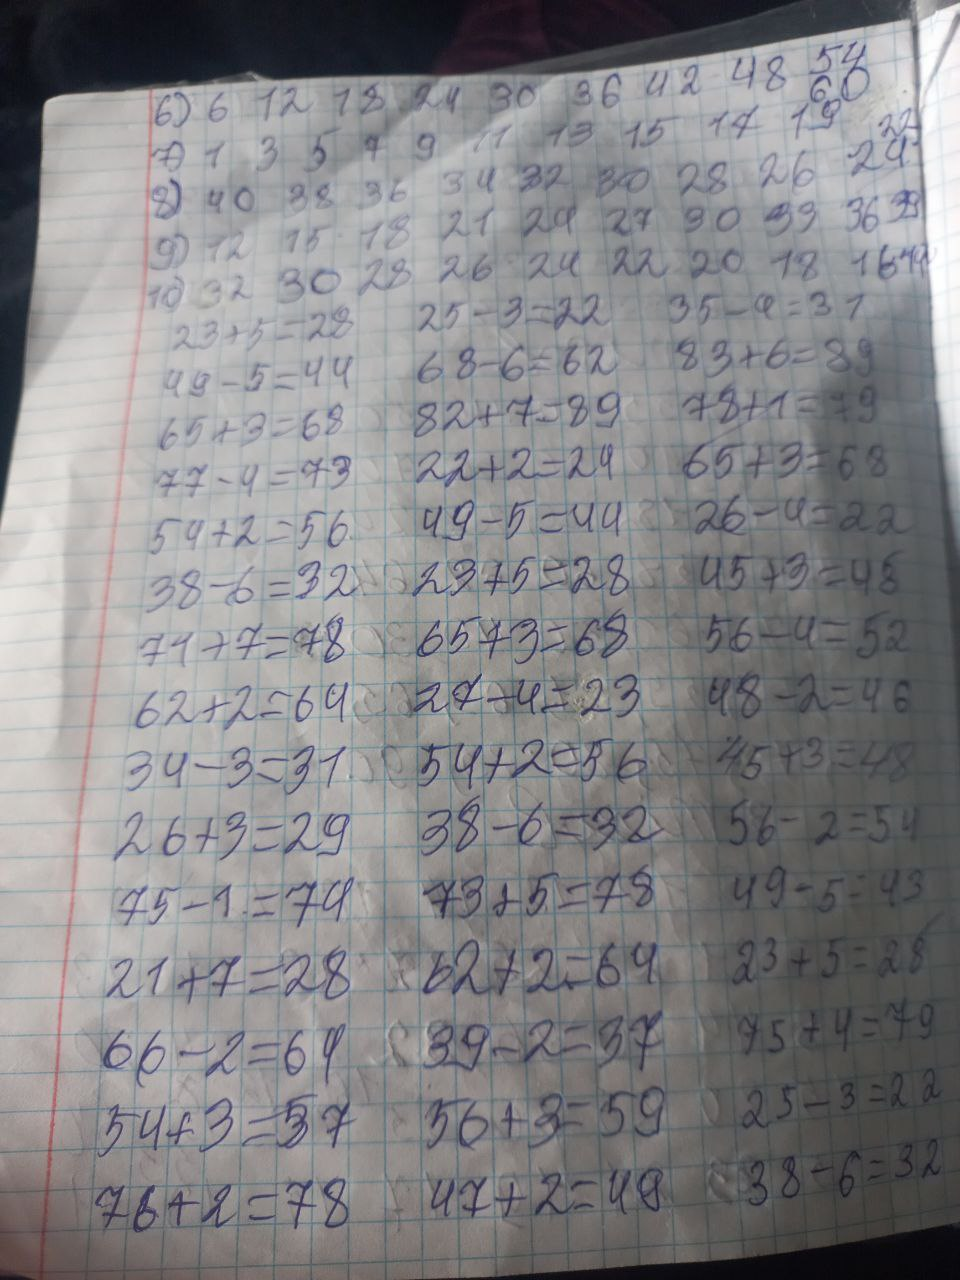 6) 6 12 18 24 30 36 42 48 54
60
7) 1 3 5 7 9 11 13 15 17 19
8) 40 38 36 34 32 30 28 26 24 22
9) 12 15 18 21 24 27 30 33 36 39
10) 32 30 28 26 24 22 20 18 16 14
23+5=28 25-3=22 35-4=31
49-5=44 68-6=62 83+6=89
65+3=68 82+7=89 78+1=79
77-4=73 22+2=24 65+3=68
54+2=56 49-5=44 26-4=22
38-6=32 23+5=28 45+3=48
71+7=78 65+3=68 56-4=52
62+2=64 27-4=23 48-2=46
34-3=31 54+2=56 45+3=48
26+3=29 38-6=32 56-2=54
75-1=74 73+5=78 49-5=43
21+7=28 62+2=64 23+5=28
66-2=64 39-2=37 75+4=79
54+3=57 56+3=59 25-3=22
76+2=78 47+2=49 38-6=32